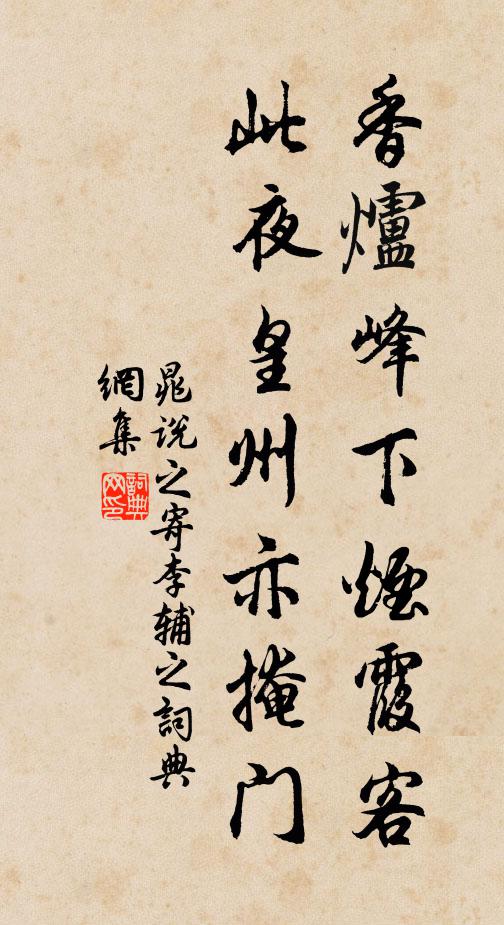 香爐峰下煙霞客
此夜皇州亦掩门
晁说之寄李辅之詞典
網集
詞典
网印